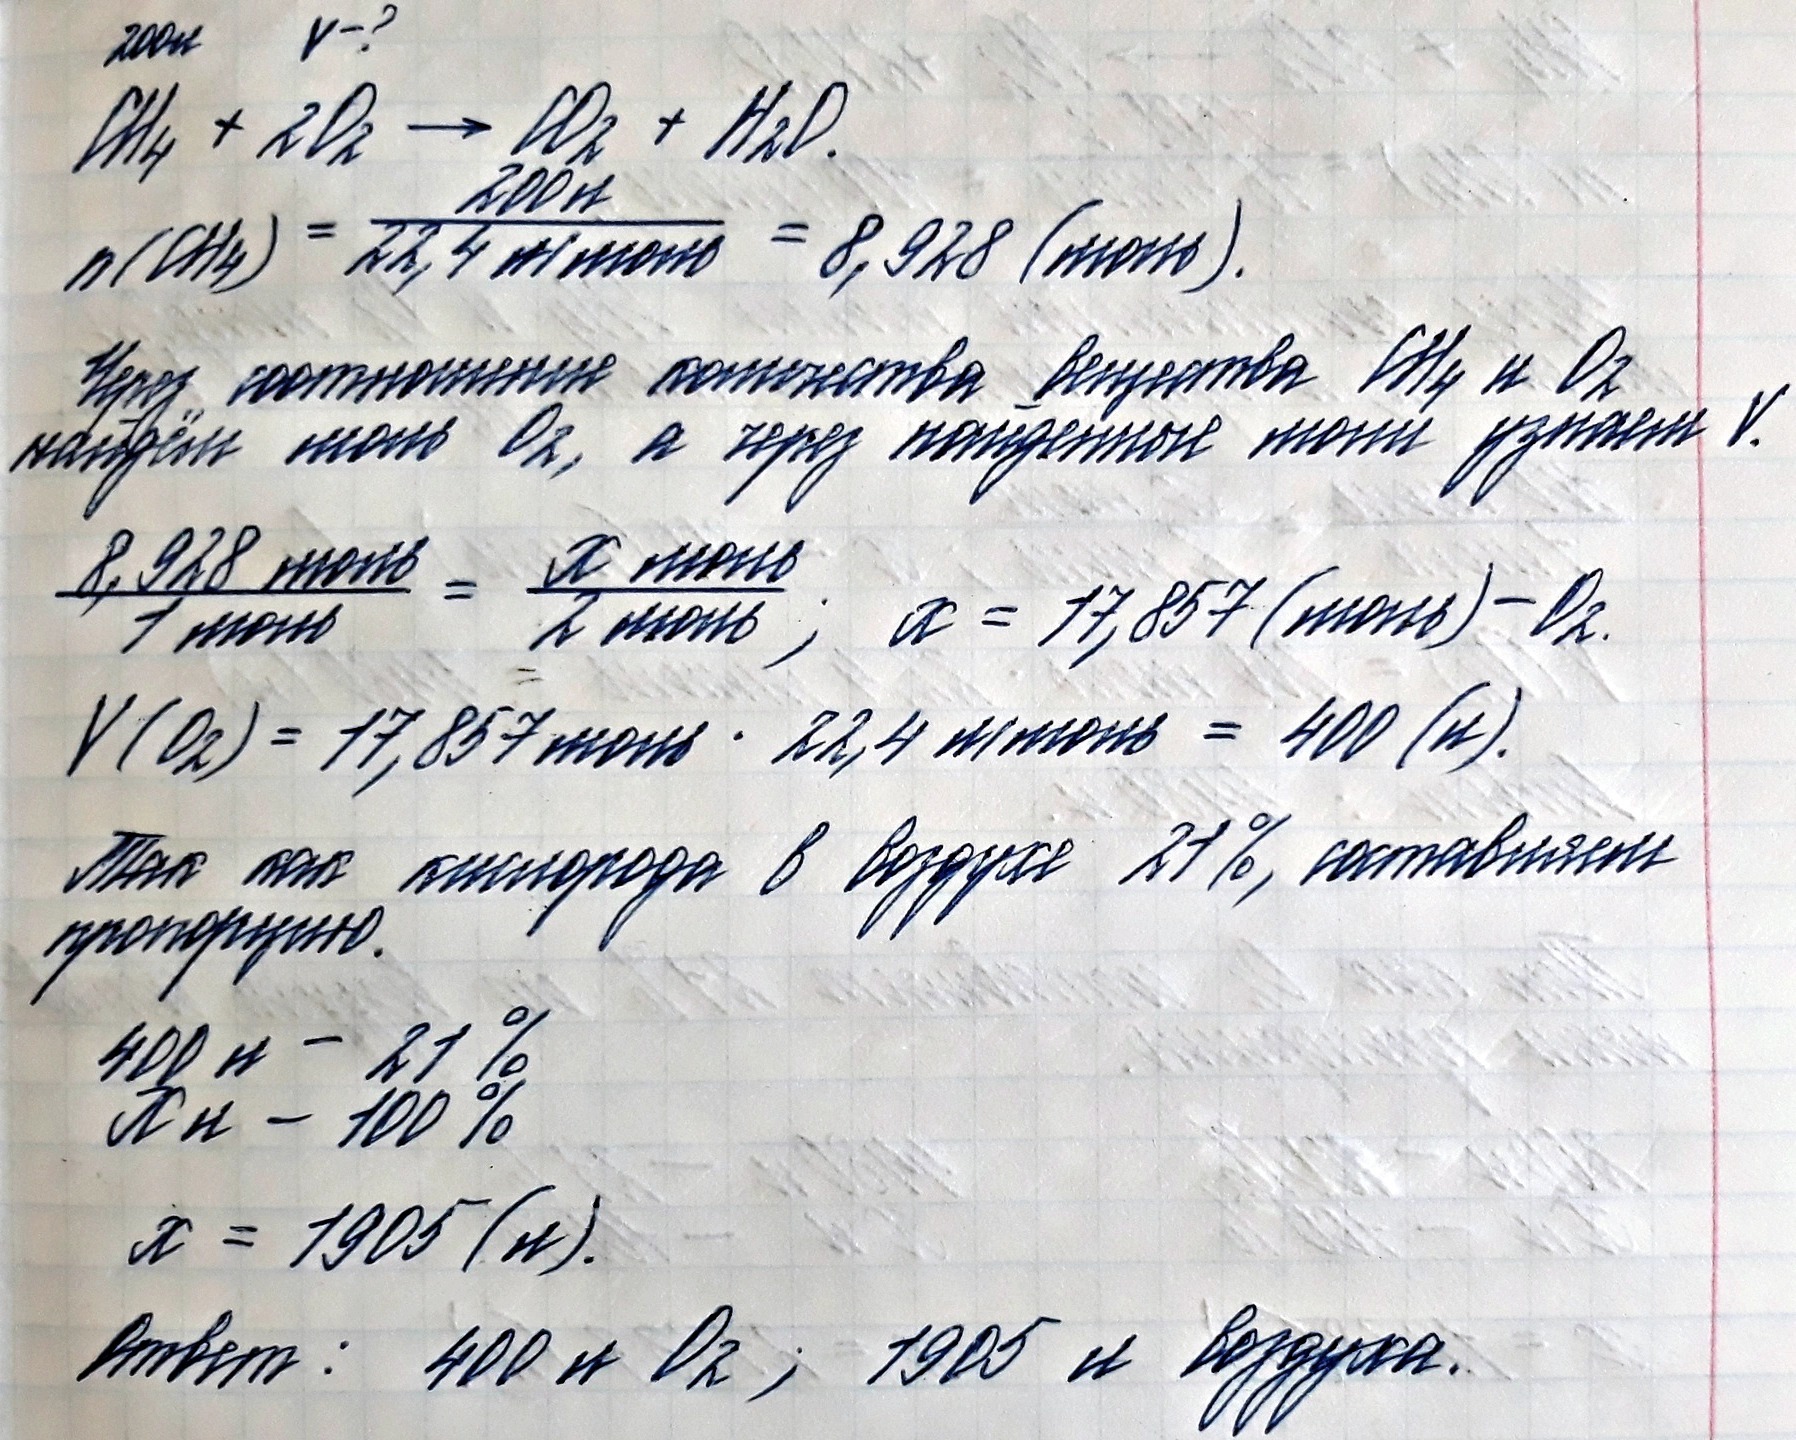 200л V-?
CH₄ + 2O₂ → CO₂ + H₂O.
n(CH₄) = 200л / 22,4 л/моль = 8,928 (моль).
Через соотношение количества вещества CH₄ и O₂
найдём моль O₂, а через найденные моли узнаем V.
8,928 моль / 1 моль = x моль / 2 моль ; x = 17,857 (моль) – O₂.
V(O₂) = 17,857 моль · 22,4 л/моль = 400 (л).
Так как кислорода в воздухе 21%, составляем
пропорцию.
400 л – 21%
X л – 100%
x = 1905 (л).
Ответ: 400 л O₂ ; 1905 л воздуха.